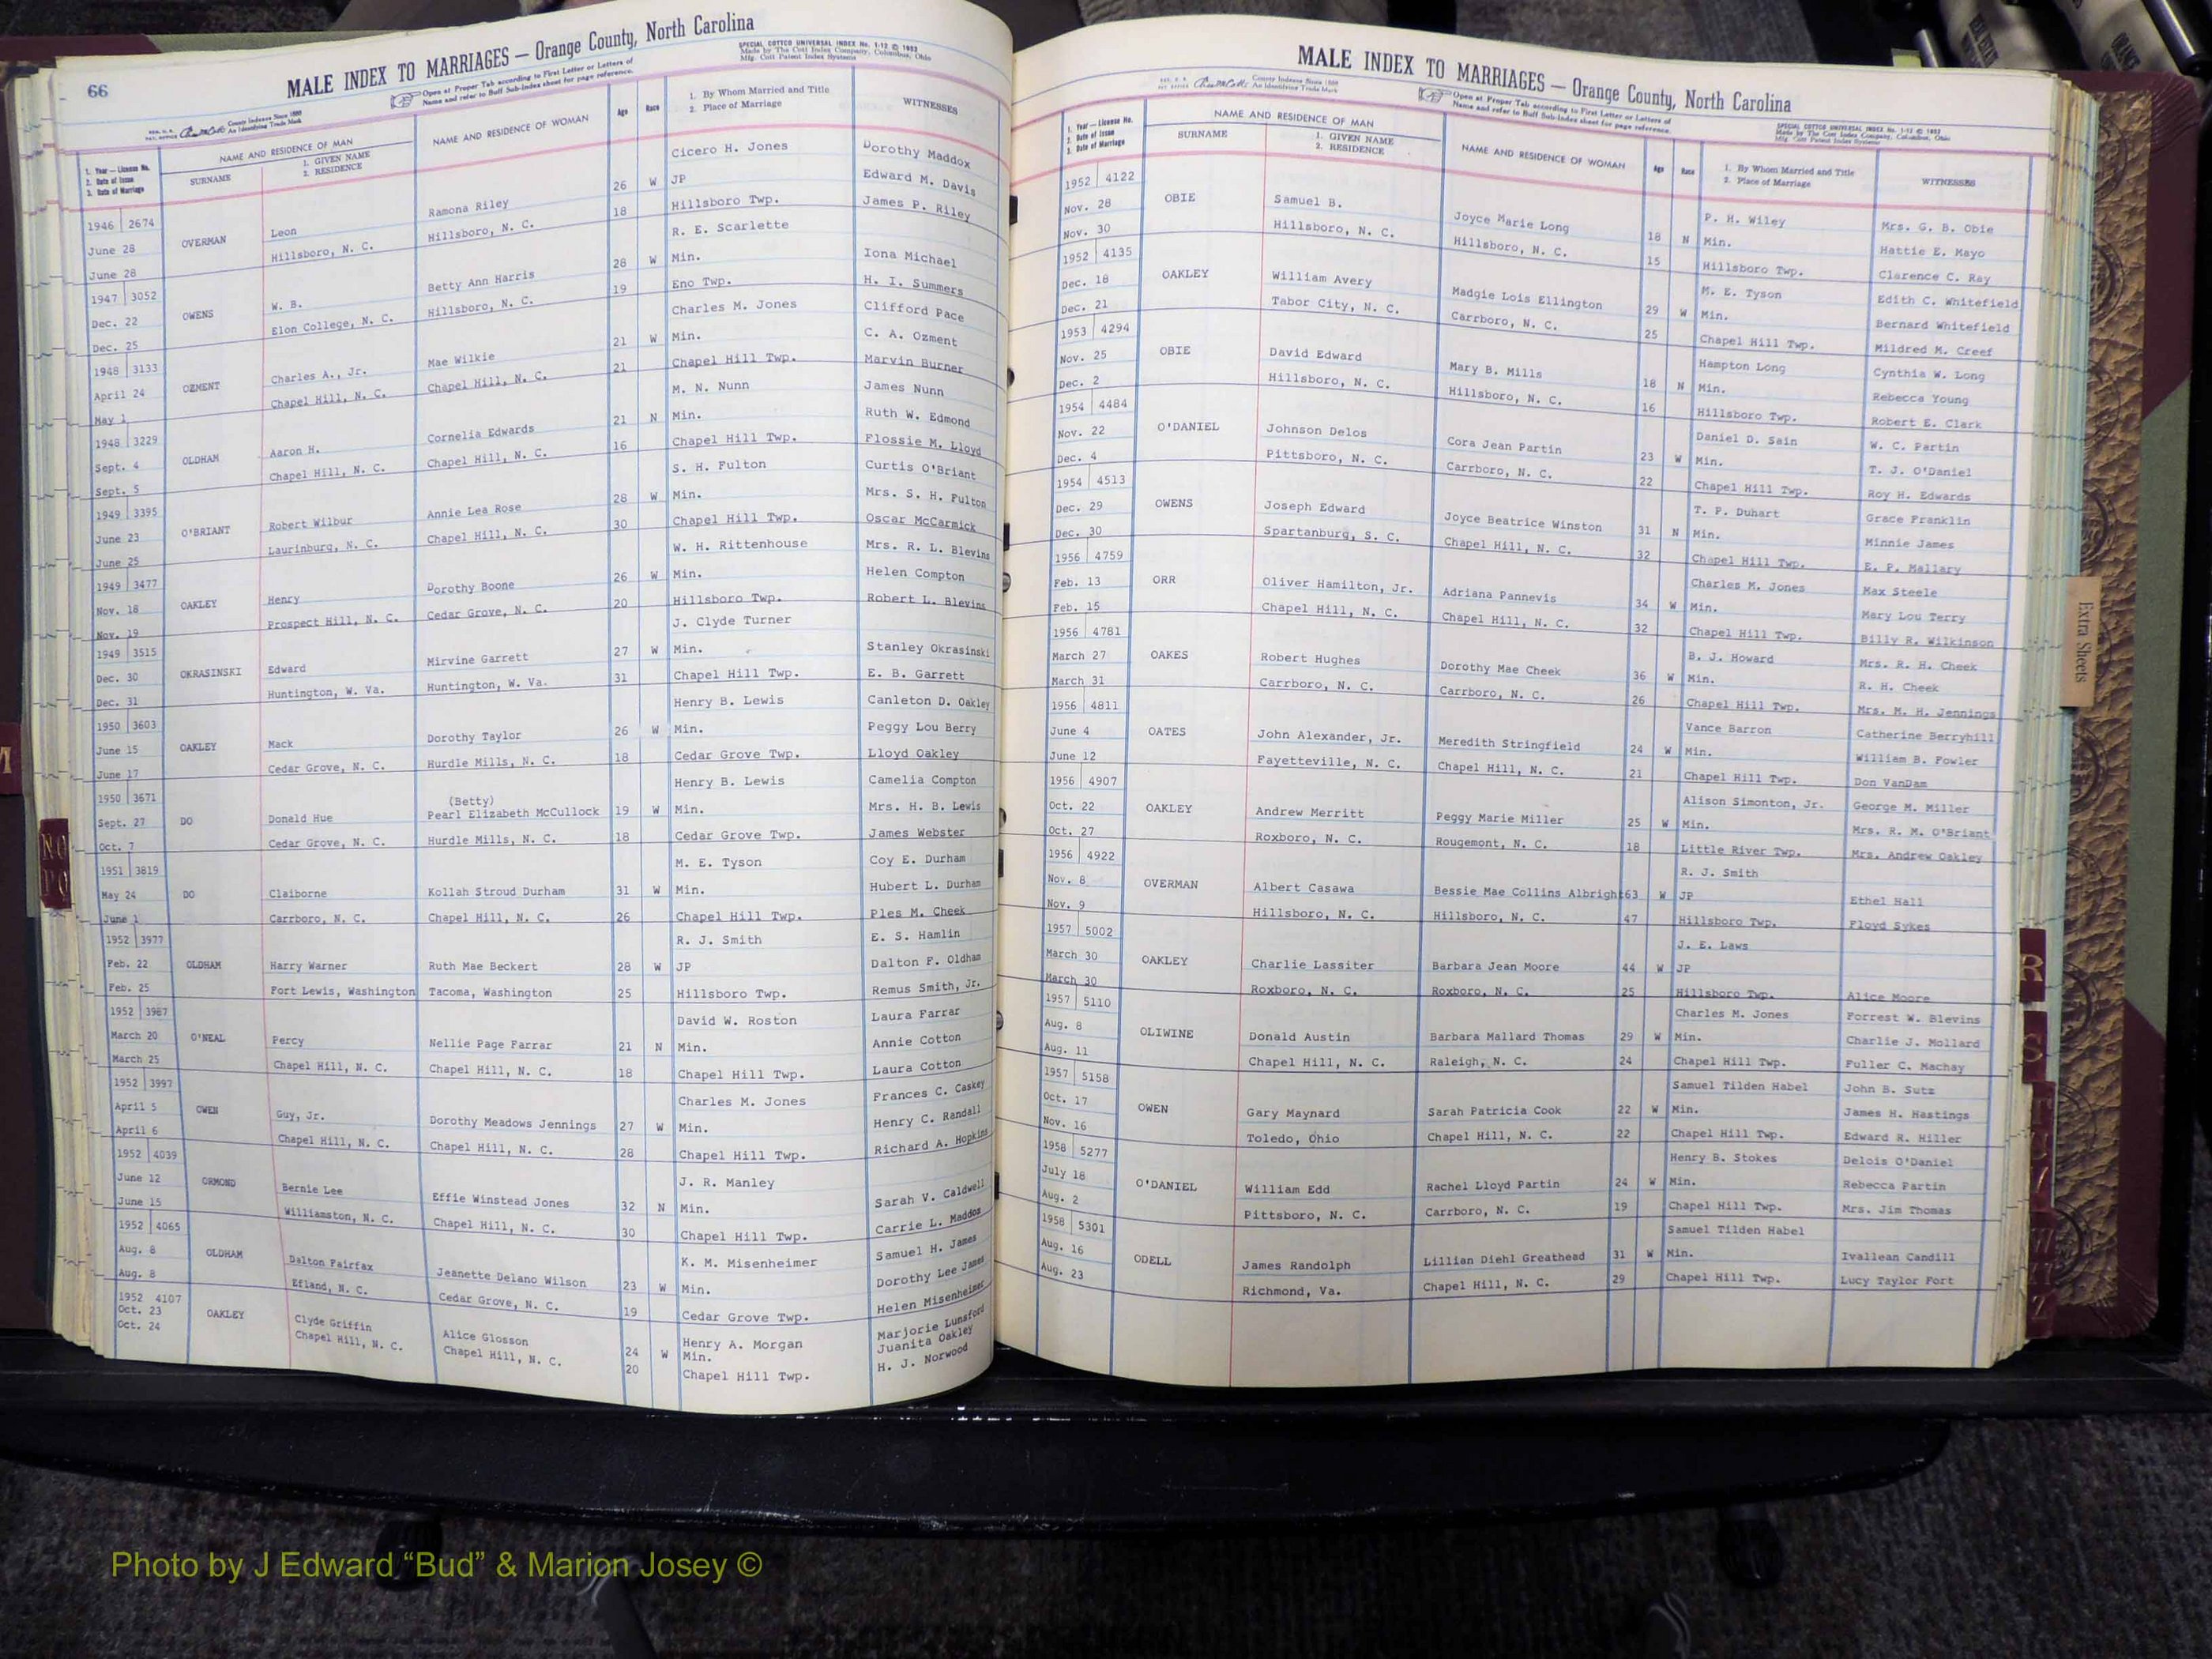 66
MALE INDEX TO MARRIAGES — Orange County, North Carolina
SPECIAL COTTCO UNIVERSAL INDEX No. 1-12 © 1953
Made by The Cott Index Company, Columbus, Ohio
Mfg. Cott Patent Index Systems
Open at Proper Tab according to First Letter or Letters of
Name and refer to Buff Sub-Index sheet for page reference.
County Indexes Since 1888
An Identifying Trade Mark
1. Year — License No.
2. Date of Issue
3. Date of Marriage
NAME AND RESIDENCE OF MAN
SURNAME
1. GIVEN NAME
2. RESIDENCE
NAME AND RESIDENCE OF WOMAN
Age
Race
1. By Whom Married and Title
2. Place of Marriage
WITNESSES
1946 2674 OVERMAN Leon Ramona Riley 26 W Cicero H. Jones Dorothy Maddox
June 28 Hillsboro, N. C. Hillsboro, N. C. 18 JP Edward M. Davis
June 28 Hillsboro Twp. James P. Riley
1947 3052 OWENS W. B. Betty Ann Harris 28 W R. E. Scarlette
Dec. 22 Elon College, N. C. Hillsboro, N. C. 19 Min. Iona Michael
Dec. 25 Eno Twp. H. I. Summers
1948 3133 OZMENT Charles A., Jr. Mae Wilkie 21 W Charles M. Jones Clifford Pace
April 24 Chapel Hill, N. C. Chapel Hill, N. C. 21 Min. C. A. Ozment
May 1 Chapel Hill Twp. Marvin Burner
1948 3229 OLDHAM Aaron H. Cornelia Edwards 21 N M. N. Nunn James Nunn
Sept. 4 Chapel Hill, N. C. Chapel Hill, N. C. 16 Min. Ruth W. Edmond
Sept. 5 Chapel Hill Twp. Flossie M. Lloyd
1949 3395 O'BRIANT Robert Wilbur Annie Lea Rose 28 W S. H. Fulton Curtis O'Briant
June 23 Laurinburg, N. C. Chapel Hill, N. C. 30 Min. Mrs. S. H. Fulton
June 25 Chapel Hill Twp. Oscar McCarmick
1949 3477 OAKLEY Henry Dorothy Boone 26 W W. H. Rittenhouse Mrs. R. L. Blevins
Nov. 18 Prospect Hill, N. C. Cedar Grove, N. C. 20 Min. Helen Compton
Nov. 19 Hillsboro Twp. Robert L. Blevins
1949 3515 OKRASINSKI Edward Mirvine Garrett 27 W J. Clyde Turner
Dec. 30 Huntington, W. Va. Huntington, W. Va. 31 Min. Stanley Okrasinski
Dec. 31 Chapel Hill Twp. E. B. Garrett
1950 3603 OAKLEY Mack Dorothy Taylor 26 W Henry B. Lewis Canleton D. Oakley
June 15 Cedar Grove, N. C. Hurdle Mills, N. C. 18 Min. Peggy Lou Berry
June 17 Cedar Grove Twp. Lloyd Oakley
1950 3671 DO Donald Hue (Betty) Henry B. Lewis Camelia Compton
Sept. 27 Pearl Elizabeth McCullock 19 W Min. Mrs. H. B. Lewis
Oct. 7 Cedar Grove, N. C. Hurdle Mills, N. C. 18 Cedar Grove Twp. James Webster
1951 3819 M. E. Tyson Coy E. Durham
May 24 DO Claiborne Kollah Stroud Durham 31 W Min. Hubert L. Durham
June 1 Carrboro, N. C. Chapel Hill, N. C. 26 Chapel Hill Twp. Ples M. Cheek
1952 3977 R. J. Smith E. S. Hamlin
Feb. 22 OLDHAM Harry Warner Ruth Mae Beckert 28 W JP Dalton F. Oldham
Feb. 25 Fort Lewis, Washington Tacoma, Washington 25 Hillsboro Twp. Remus Smith, Jr.
1952 3987 David W. Roston Laura Farrar
March 20 O'NEAL Percy Nellie Page Farrar 21 N Min. Annie Cotton
March 25 Chapel Hill, N. C. Chapel Hill, N. C. 18 Chapel Hill Twp. Laura Cotton
1952 3997 Charles M. Jones Frances C. Caskey
April 5 OWEN Guy, Jr. Dorothy Meadows Jennings 27 W Min. Henry C. Randall
April 6 Chapel Hill, N. C. Chapel Hill, N. C. 28 Chapel Hill Twp. Richard A. Hopkins
1952 4039 J. R. Manley
June 12 ORMOND Bernie Lee Effie Winstead Jones 32 N Min. Sarah V. Caldwell
June 15 Williamston, N. C. Chapel Hill, N. C. 30 Chapel Hill Twp. Carrie L. Maddos
1952 4065 K. M. Misenheimer Samuel H. James
Aug. 8 OLDHAM Dalton Fairfax Jeanette Delano Wilson 23 W Min. Dorothy Lee James
Aug. 8 Efland, N. C. Cedar Grove, N. C. 19 Cedar Grove Twp. Helen Misenheimer
1952 4107 Henry A. Morgan Marjorie Lunsford
Oct. 23 OAKLEY Clyde Griffin Alice Glosson 24 W Min. Juanita Oakley
Oct. 24 Chapel Hill, N. C. Chapel Hill, N. C. 20 Chapel Hill Twp. H. J. Norwood
MALE INDEX TO MARRIAGES — Orange County, North Carolina
County Indexes Since 1888
An Identifying Trade Mark
Open at Proper Tab according to First Letter or Letters of
Name and refer to Buff Sub-Index sheet for page reference.
SPECIAL COTTCO UNIVERSAL INDEX No. 1-12 © 1953
Made by The Cott Index Company, Columbus, Ohio
Mfg. Cott Patent Index Systems
1. Year — License No.
2. Date of Issue
3. Date of Marriage
NAME AND RESIDENCE OF MAN
SURNAME
1. GIVEN NAME
2. RESIDENCE
NAME AND RESIDENCE OF WOMAN
Age
Race
1. By Whom Married and Title
2. Place of Marriage
WITNESSES
1952 4122 P. H. Wiley Mrs. G. B. Obie
Nov. 28 OBIE Samuel B. Joyce Marie Long 18 N Min. Hattie E. Mayo
Nov. 30 Hillsboro, N. C. Hillsboro, N. C. 15 Hillsboro Twp. Clarence C. Ray
1952 4135 M. E. Tyson Edith C. Whitefield
Dec. 18 OAKLEY William Avery Madgie Lois Ellington 29 W Min. Bernard Whitefield
Dec. 21 Tabor City, N. C. Carrboro, N. C. 25 Chapel Hill Twp. Mildred M. Creef
1953 4294 Hampton Long Cynthia W. Long
Nov. 25 OBIE David Edward Mary B. Mills 18 N Min. Rebecca Young
Dec. 2 Hillsboro, N. C. Hillsboro, N. C. 16 Hillsboro Twp. Robert E. Clark
1954 4484 Daniel D. Sain W. C. Partin
Nov. 22 O'DANIEL Johnson Delos Cora Jean Partin 23 W Min. T. J. O'Daniel
Dec. 4 Pittsboro, N. C. Carrboro, N. C. 22 Chapel Hill Twp. Roy H. Edwards
1954 4513 T. P. Duhart Grace Franklin
Dec. 29 OWENS Joseph Edward Joyce Beatrice Winston 31 N Min. Minnie James
Dec. 30 Spartanburg, S. C. Chapel Hill, N. C. 32 Chapel Hill Twp. E. P. Mallary
1956 4759 Charles M. Jones Max Steele
Feb. 13 ORR Oliver Hamilton, Jr. Adriana Pannevis 34 W Min. Mary Lou Terry
Feb. 15 Chapel Hill, N. C. Chapel Hill, N. C. 32 Chapel Hill Twp. Billy R. Wilkinson
1956 4781 B. J. Howard Mrs. R. H. Cheek
March 27 OAKES Robert Hughes Dorothy Mae Cheek 36 W Min. R. H. Cheek
March 31 Carrboro, N. C. Carrboro, N. C. 26 Chapel Hill Twp. Mrs. M. H. Jennings
1956 4811 Vance Barron Catherine Berryhill
June 4 OATES John Alexander, Jr. Meredith Stringfield 24 W Min. William B. Fowler
June 12 Fayetteville, N. C. Chapel Hill, N. C. 21 Chapel Hill Twp. Don VanDam
1956 4907 Alison Simonton, Jr. George M. Miller
Oct. 22 OAKLEY Andrew Merritt Peggy Marie Miller 25 W Min. Mrs. R. M. O'Briant
Oct. 27 Roxboro, N. C. Rougemont, N. C. 18 Little River Twp. Mrs. Andrew Oakley
1956 4922 R. J. Smith
Nov. 8 OVERMAN Albert Casawa Bessie Mae Collins Albright 63 W JP Ethel Hall
Nov. 9 Hillsboro, N. C. Hillsboro, N. C. 47 Hillsboro Twp. Floyd Sykes
1957 5002 J. E. Laws
March 30 OAKLEY Charlie Lassiter Barbara Jean Moore 44 W JP
March 30 Roxboro, N. C. Roxboro, N. C. 25 Hillsboro Twp. Alice Moore
1957 5110 Charles M. Jones Forrest W. Blevins
Aug. 8 OLIWINE Donald Austin Barbara Mallard Thomas 29 W Min. Charlie J. Mollard
Aug. 11 Chapel Hill, N. C. Raleigh, N. C. 24 Chapel Hill Twp. Fuller C. Machay
1957 5158 Samuel Tilden Habel John B. Sutz
Oct. 17 OWEN Gary Maynard Sarah Patricia Cook 22 W Min. James H. Hastings
Nov. 16 Toledo, Ohio Chapel Hill, N. C. 22 Chapel Hill Twp. Edward R. Hiller
1958 5277 Henry B. Stokes Delois O'Daniel
July 18 O'DANIEL William Edd Rachel Lloyd Partin 24 W Min. Rebecca Partin
Aug. 2 Pittsboro, N. C. Carrboro, N. C. 19 Chapel Hill Twp. Mrs. Jim Thomas
1958 5301 Samuel Tilden Habel
Aug. 16 ODELL James Randolph Lillian Diehl Greathead 31 W Min. Ivallean Candill
Aug. 23 Richmond, Va. Chapel Hill, N. C. 29 Chapel Hill Twp. Lucy Taylor Fort
Extra Sheets
NO
PQ
R
S
Photo by J Edward “Bud” & Marion Josey ©